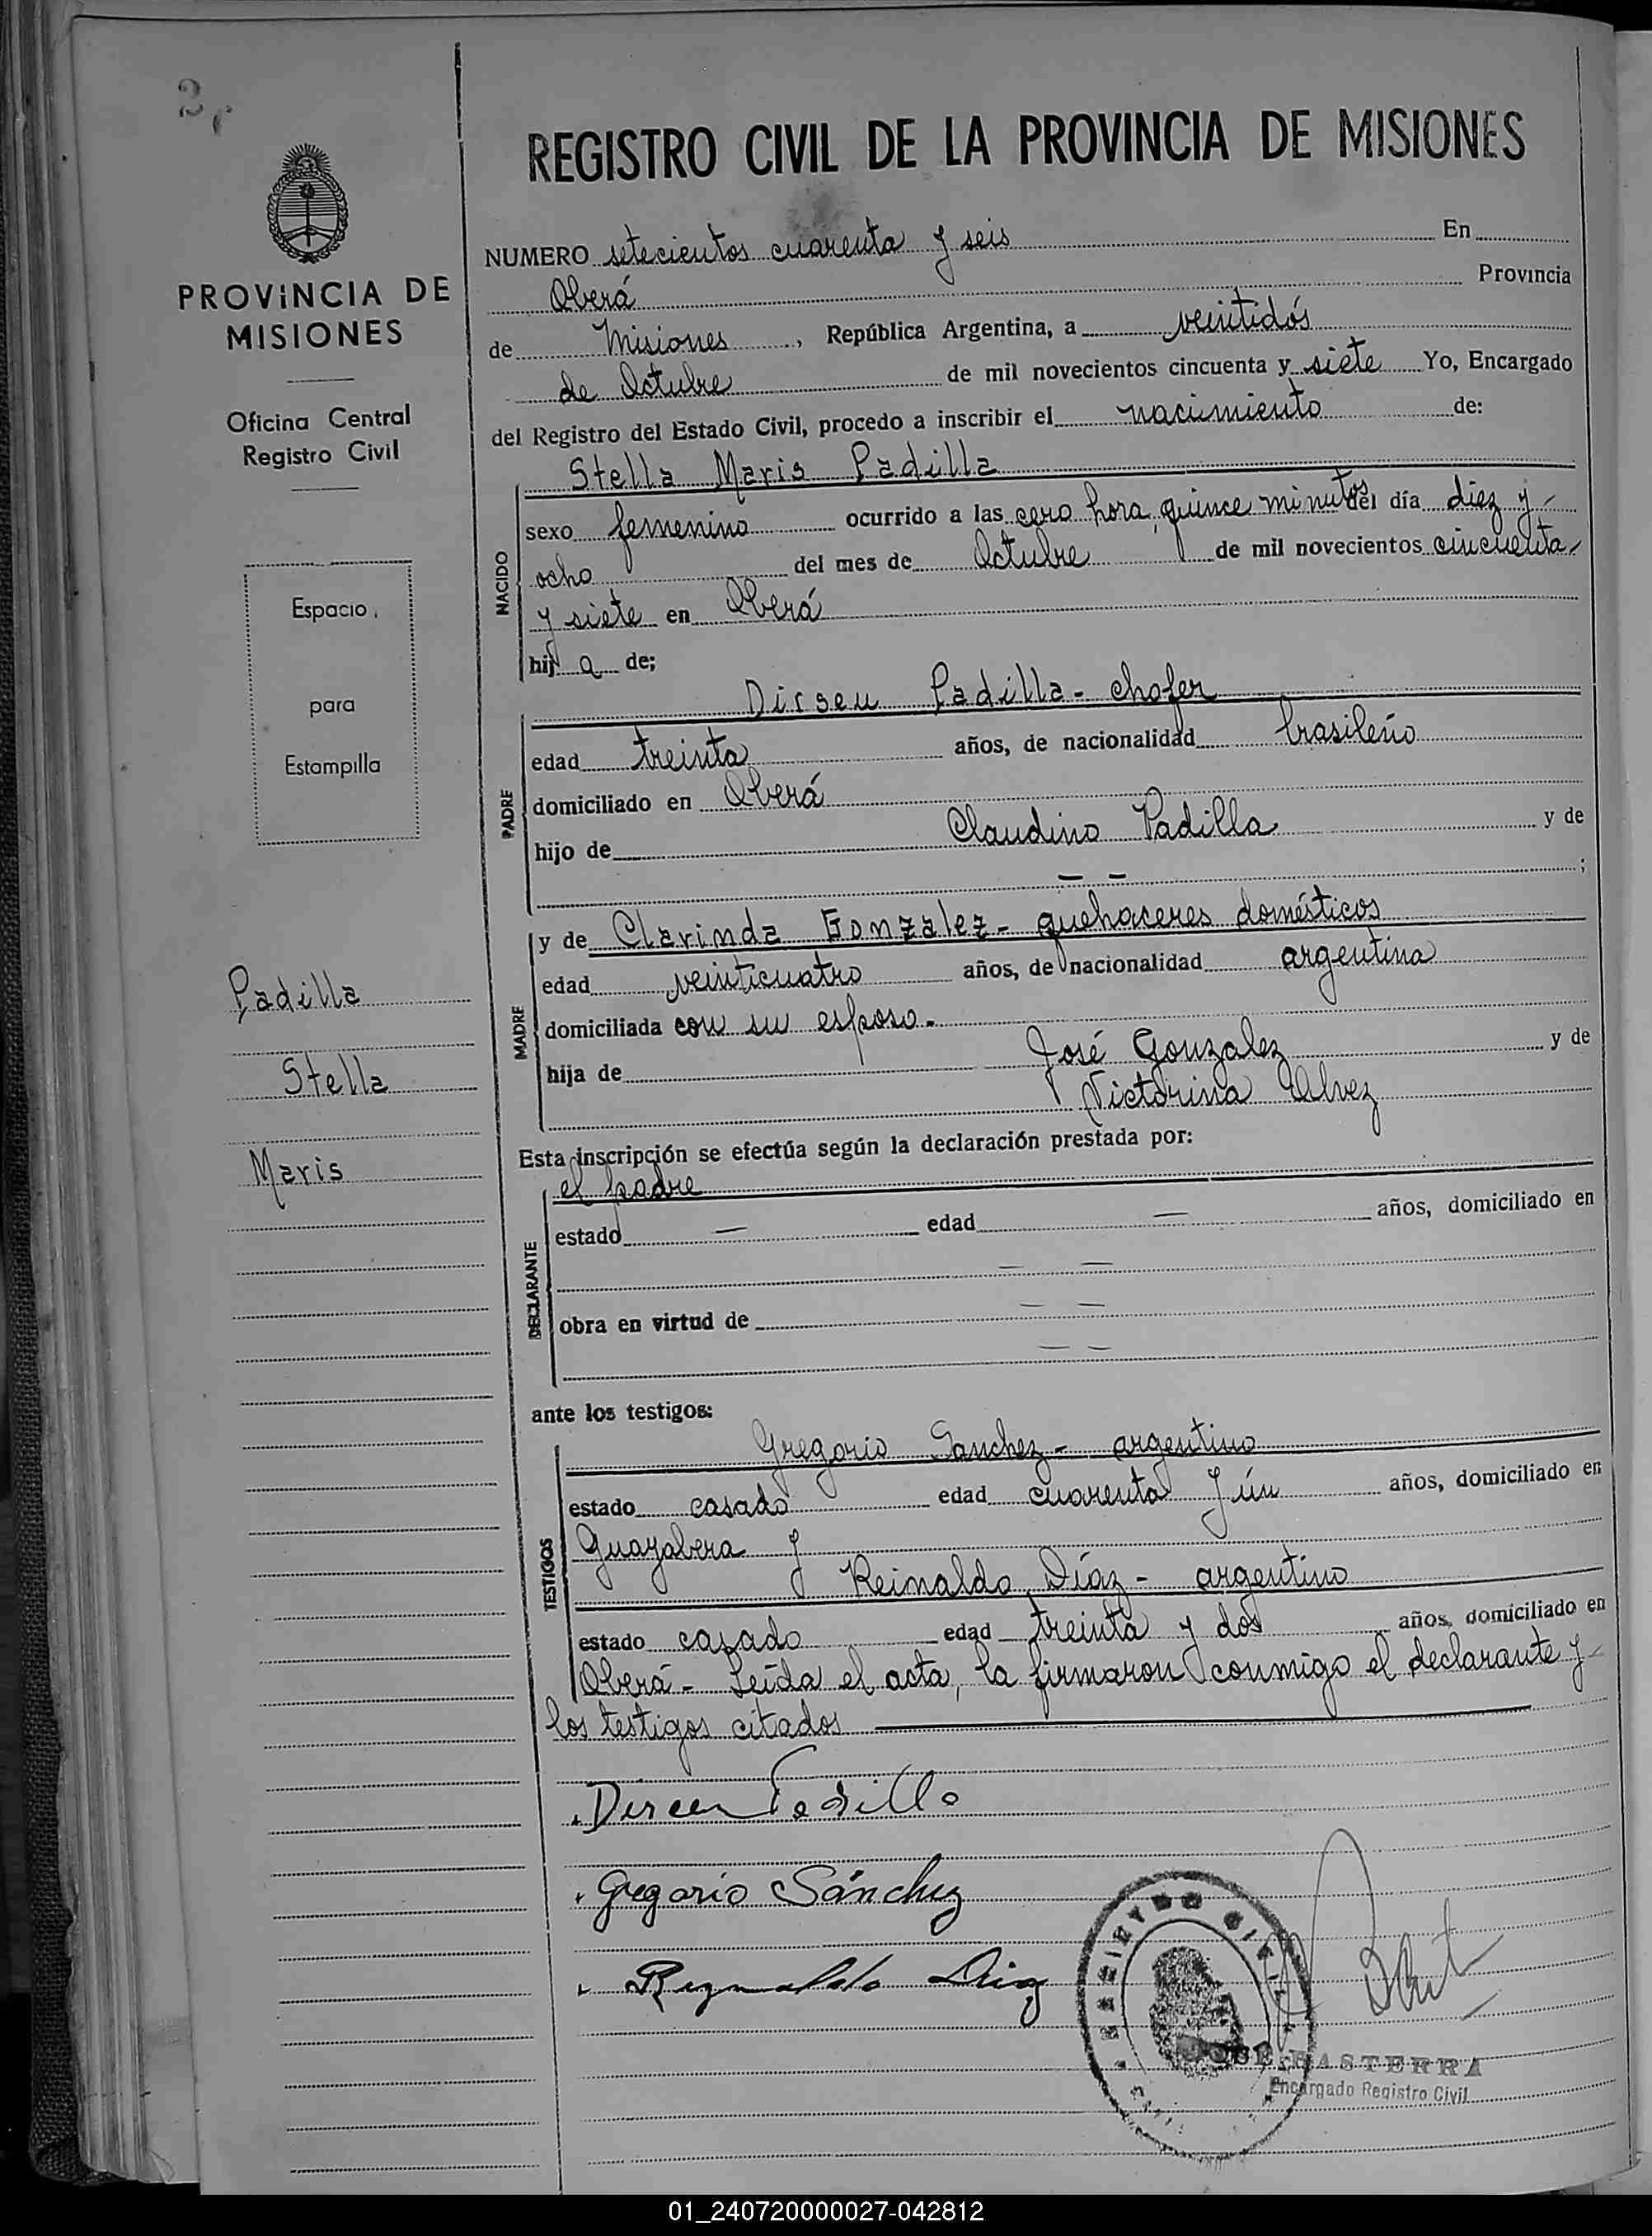 2
REGISTRO CIVIL DE LA PROVINCIA DE MISIONES
PROVINCIA DE
MISIONES
Oficina Central
Registro Civil
Espacio
para
Estampilla
Padilla
Stella
Maris
NUMERO setecientos cuarenta y seis En
Oberá Provincia
de Misiones, República Argentina, a veintidós
de Octubre de mil novecientos cincuenta y siete Yo, Encargado
del Registro del Estado Civil, procedo a inscribir el nacimiento de:
Stella Maris Padilla
NACIDO
sexo femenino ocurrido a las cero hora, quince minutos del día diez y
ocho del mes de Octubre de mil novecientos cincuenta
y siete en Oberá
hij a de;
Dirseu Padilla - chofer
PADRE
edad treinta años, de nacionalidad brasileño
domiciliado en Oberá
hijo de Claudino Padilla y de
— — ;
y de Clarinda Gonzalez - quehaceres domésticos
MADRE
edad veinticuatro años, de nacionalidad argentina
domiciliada con su esposo.-
hija de José Gonzalez y de
Victorina Alvez
Esta inscripción se efectúa según la declaración prestada por:
el padre
DECLARANTE
estado — edad — años, domiciliado en
— —
obra en virtud de — —
— —
ante los testigos:
Gregorio Sanchez - argentino
TESTIGOS
estado casado edad cuarenta y ún años, domiciliado en
Guayabera y
Reinaldo Díaz - argentino
estado casado edad treinta y dos años, domiciliado en
Oberá - Leída el acta, la firmaron conmigo el declarante y
los testigos citados
Dirceu Padilla
Gregorio Sánchez
Reynaldo Diaz
REGISTRO CIVIL
BASTERRA
Encargado Registro Civil
01_240720000027-042812